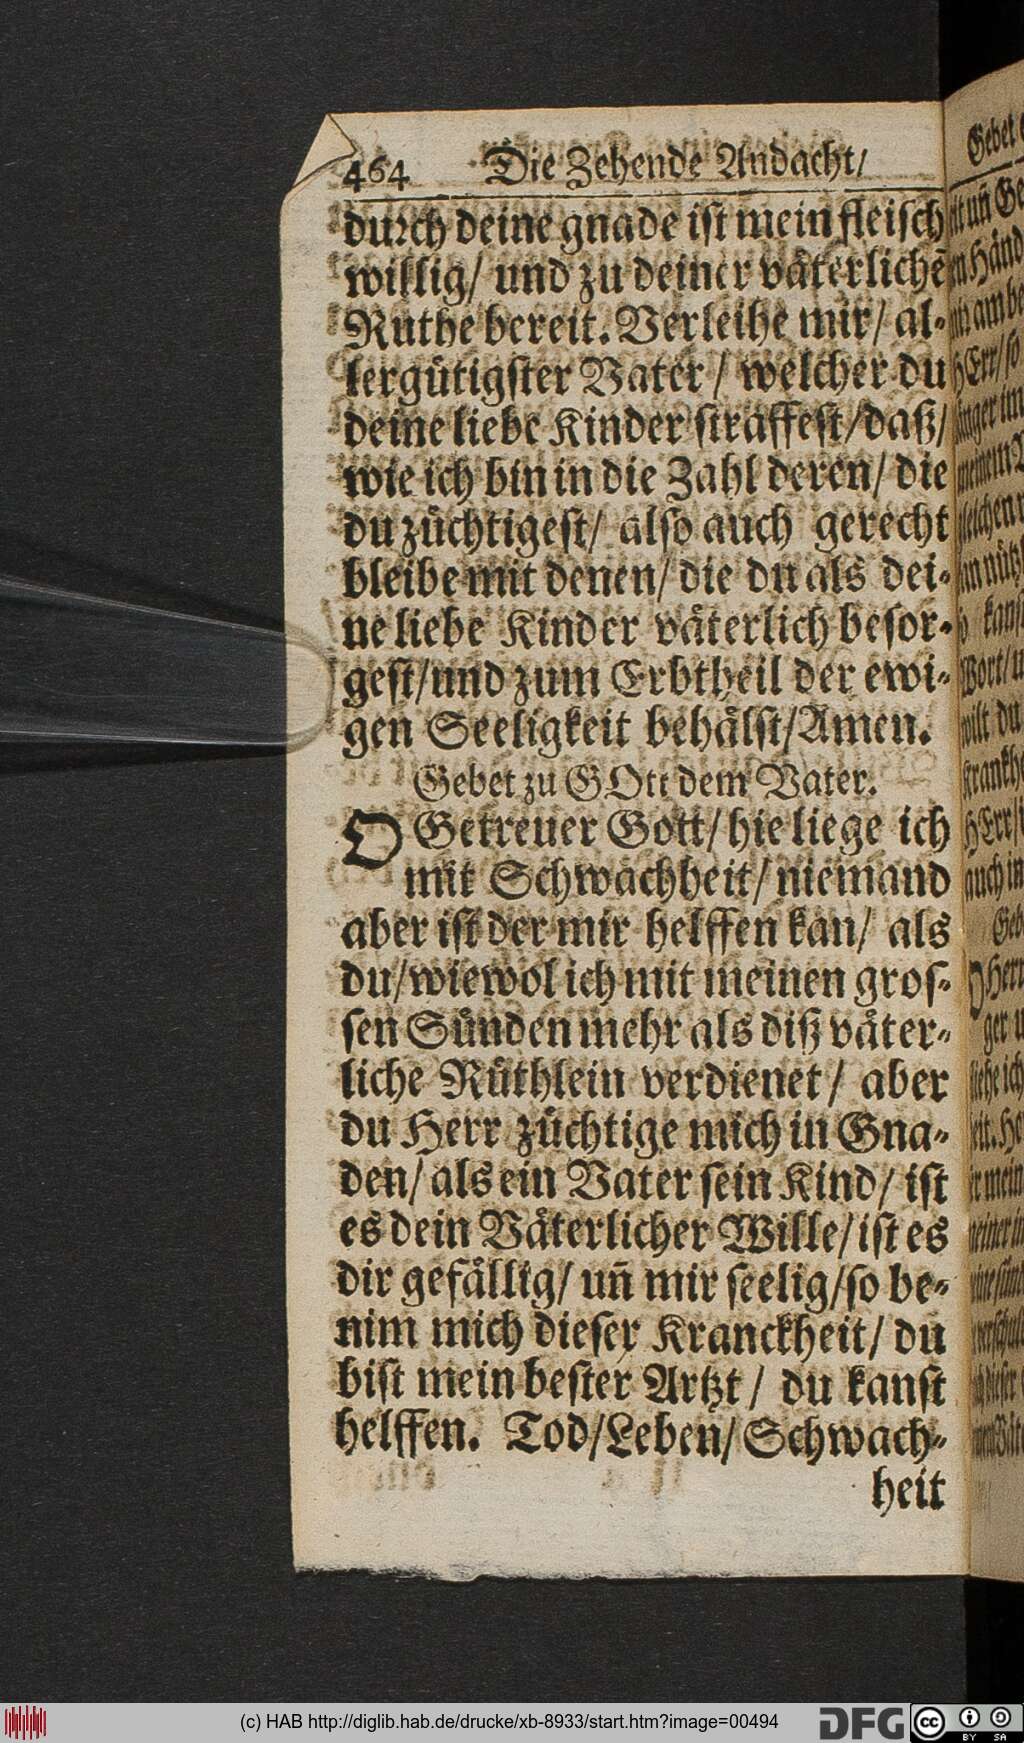 464 Die Zehende Andacht/
durch deine gnade ist mein fleisch
willig/ und zu deiner väterlichē
Ruthe bereit. Verleihe mir/ al-
lergütigster Vater/ welcher du
deine liebe Kinder straffest/ daß/
wie ich bin in die Zahl deren/ die
du züchtigest/ also auch gerecht
bleibe mit denen/ die du als dei-
ne liebe Kinder väterlich besor-
gest/ und zum Erbtheil der ewi-
gen Seeligkeit behälst/ Amen.
Gebet zu GOtt dem Vater.
O Getreuer Gott/ hie liege ich
mit Schwachheit/ niemand
aber ist der mir helffen kan/ als
du/ wiewol ich mit meinen gros-
sen Sünden mehr als diß väter-
liche Rüthlein verdienet/ aber
du Herr züchtige mich in Gna-
den/ als ein Vater sein Kind/ ist
es dein Väterlicher Wille/ ist es
dir gefällig/ uñ mir seelig/ so be-
nim mich dieser Kranckheit/ du
bist mein bester Artzt/ du kanst
helffen. Tod/ Leben/ Schwach-
heit
(c) HAB http://diglib.hab.de/drucke/xb-8933/start.htm?image=00494
DFG cc BY SA